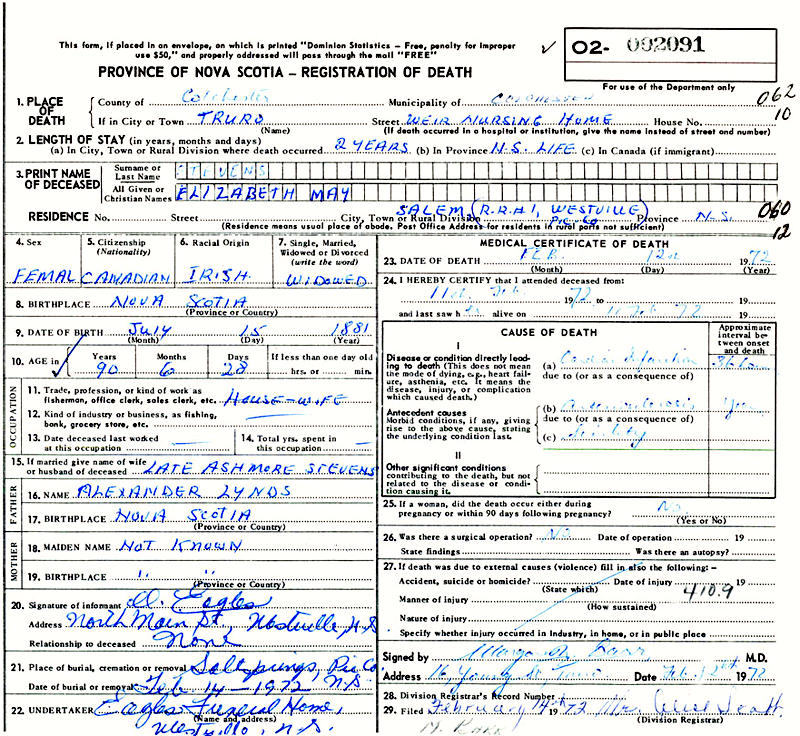 This form, if placed in an envelope, on which is printed "Dominion Statistics – Free, penalty for improper
use $50," and properly addressed will pass through the mail "FREE"
✓ 02- 002091
PROVINCE OF NOVA SCOTIA – REGISTRATION OF DEATH
For use of the Department only
1. PLACE OF DEATH { County of Colchester Municipality of COLCHESTER 062
If in City or Town TRURO Street WEIR NURSING HOME House No. 10
(Name) (If death occurred in a hospital or institution, give the name instead of street and number)
2. LENGTH OF STAY (in years, months and days)
(a) In City, Town or Rural Division where death occurred 2 YEARS (b) In Province N.S. LIFE (c) In Canada (if immigrant)
3. PRINT NAME OF DECEASED
Surname or Last Name STEVENS
All Given or Christian Names ELIZABETH MAY
RESIDENCE No. Street City, Town or Rural Division SALEM (R.R.#1, WESTVILLE) Pic. Co Province N.S. 060
(Residence means usual place of abode. Post Office Address for residents in rural parts not sufficient) 12
4. Sex FEMAL
5. Citizenship (Nationality) CANADIAN
6. Racial Origin IRISH
7. Single, Married, Widowed or Divorced (write the word) WIDOWED
8. BIRTHPLACE NOVA SCOTIA
(Province or Country)
9. DATE OF BIRTH JULY 15 1881
(Month) (Day) (Year)
10. AGE in ✓ Years 90 Months 6 Days 28 If less than one day old
hrs. or min.
OCCUPATION
11. Trade, profession, or kind of work as
fisherman, office clerk, sales clerk, etc. HOUSE-WIFE
12. Kind of industry or business, as fishing,
bank, grocery store, etc.
13. Date deceased last worked at this occupation —
14. Total yrs. spent in this occupation —
15. If married give name of wife
or husband of deceased LATE ASHMORE STEVENS
FATHER
16. NAME ALEXANDER LYNDS
17. BIRTHPLACE NOVA SCOTIA
(Province or Country)
MOTHER
18. MAIDEN NAME NOT KNOWN
19. BIRTHPLACE " "
(Province or Country)
20. Signature of informant Eagles
Address North Main St, Westville, N.S
Relationship to deceased None
21. Place of burial, cremation or removal Salt Springs, Pic Co. N.S.
Date of burial or removal Feb 14 – 1972
22. UNDERTAKER Eagles Funeral Home,
(Name and address)
Westville, N.S.
MEDICAL CERTIFICATE OF DEATH
23. DATE OF DEATH FEB. 12th 1972
(Month) (Day) (Year)
24. I HEREBY CERTIFY that I attended deceased from:
11th Feb 1972 to 19
and last saw h alive on 11 Feb 72 19
CAUSE OF DEATH
Approximate interval between onset and death
I
Disease or condition directly leading to death (This does not mean
the mode of dying, e.g., heart failure, asthenia, etc. It means the
disease, injury, or complication which caused death.)
(a) Cardiac Infarction
due to (or as a consequence of)
Antecedent causes
Morbid conditions, if any, giving rise to the above cause, stating
the underlying condition last.
(b) Arteriosclerosis Years
due to (or as a consequence of)
(c) Senility
II
Other significant conditions
contributing to the death, but not related to the disease or condition causing it.
25. If a woman, did the death occur either during
pregnancy or within 90 days following pregnancy? No
(Yes or No)
26. Was there a surgical operation? NO Date of operation 19
State findings Was there an autopsy?
27. If death was due to external causes (violence) fill in also the following:–
Accident, suicide or homicide? Date of injury 19
(State which)
Manner of injury 410.9
(How sustained)
Nature of injury
Specify whether injury occurred in industry, in home, or in public place
Signed by M.D.
Address 16, Young St. Truro Date Feb 12th 1972
28. Division Registrar's Record Number
29. Filed February 14th 1972 Mr. Scott
(Division Registrar)